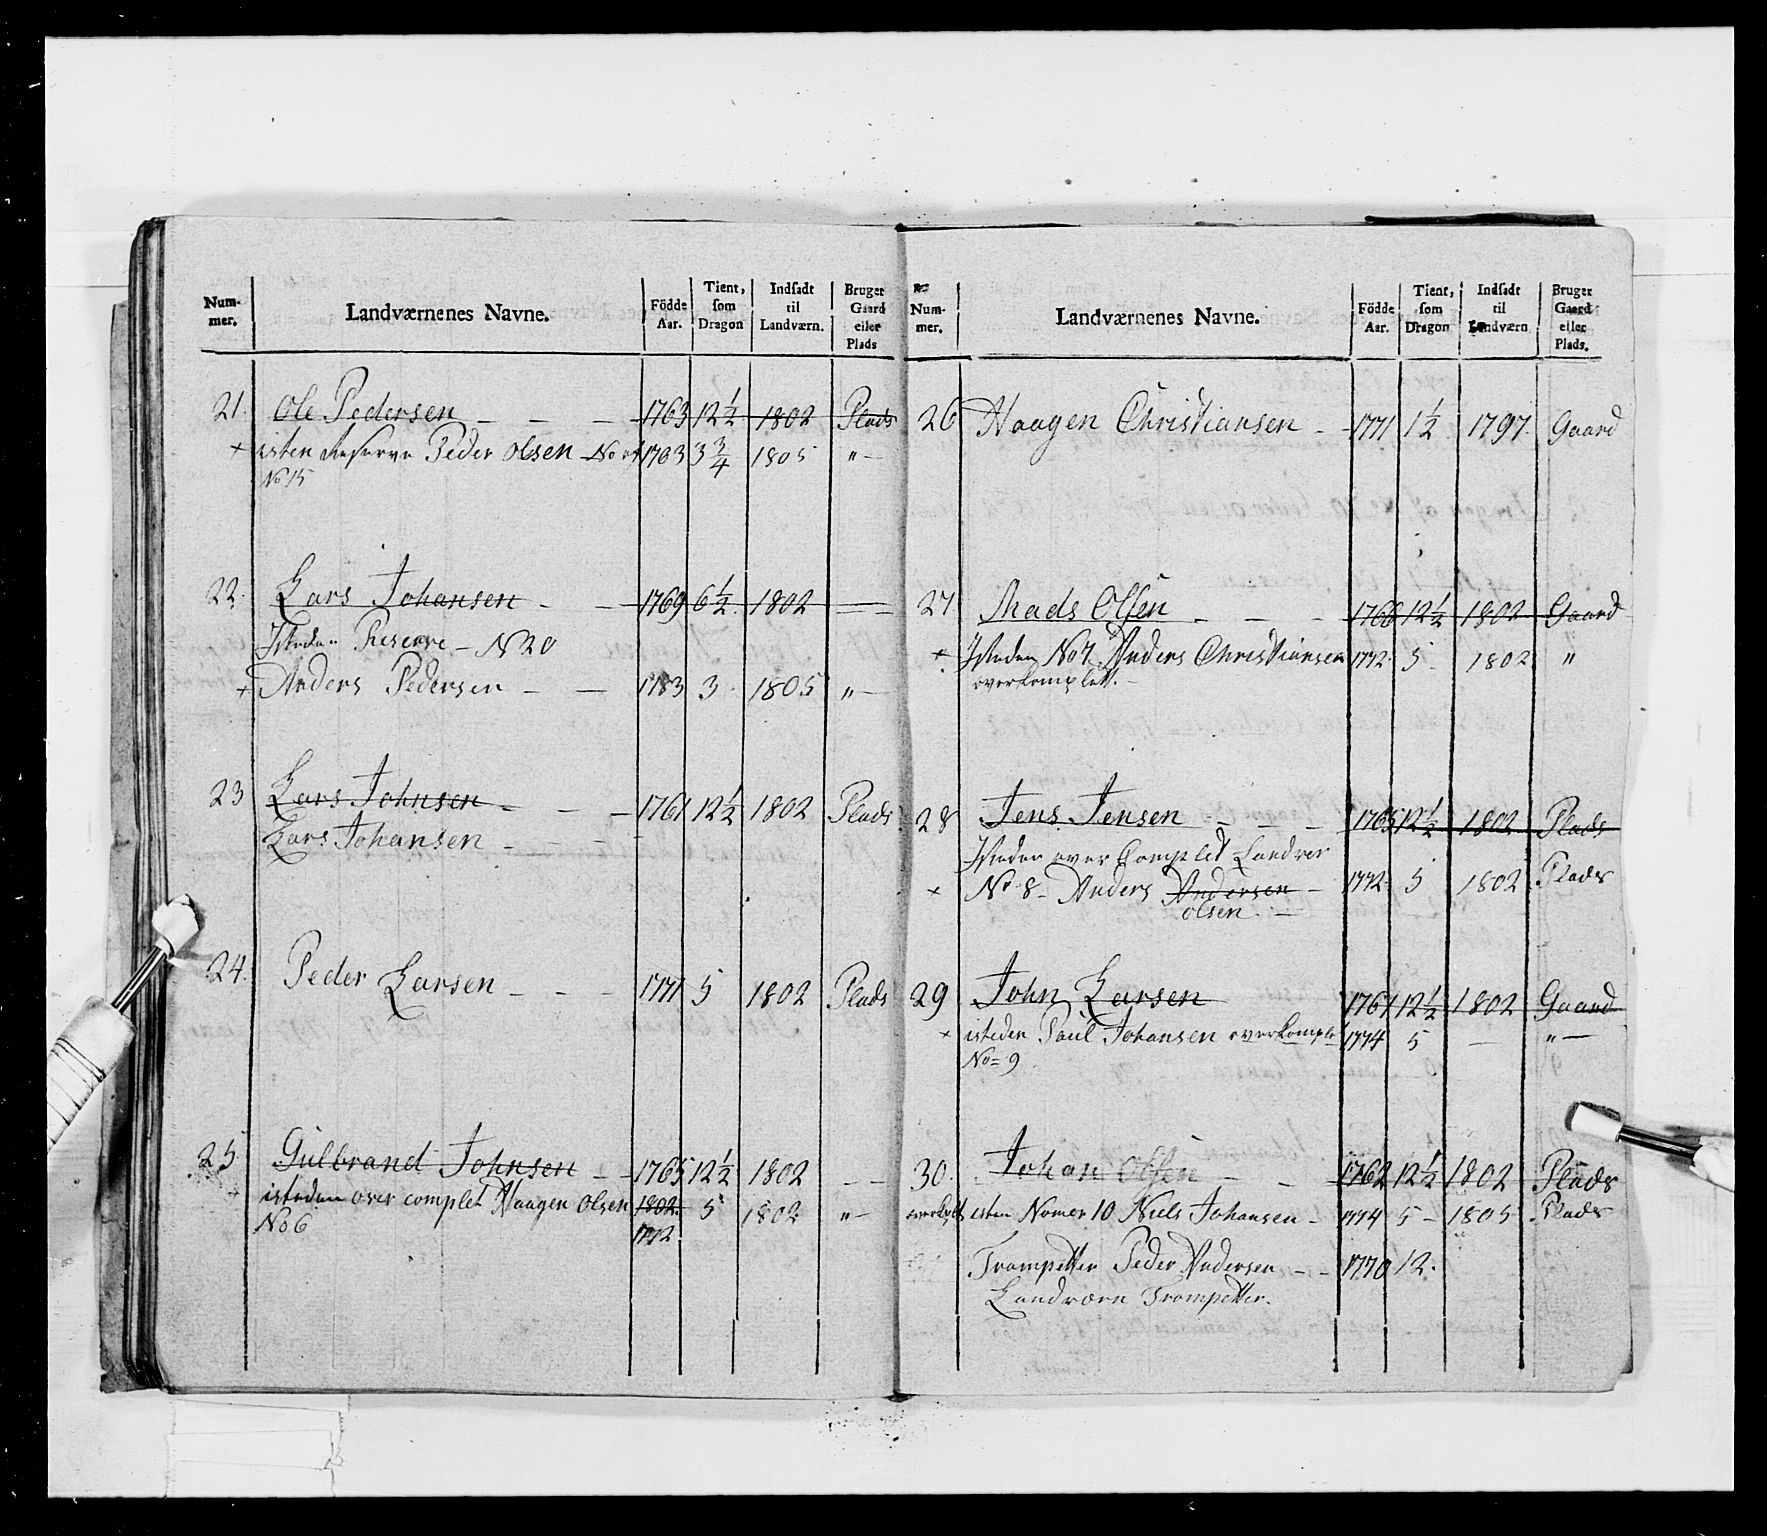 Num-
mer.
Landværnenes Navne.
Födde
Aar.
Tient,
som
Dragon
Indsadt
til
Landværn.
Bruger
Gaard
eller
Plads
21. Ole Pedersen - - - 1763 12½ 1802 Plads
+ isten Reserve Peder Olsen No 1763 3¾ 1805 "-
No 15
22. Lars Johansen - - 1769 6½ 1802 -
Isteden Reserve - N 20
+ Anders Pedersen - - 1783 3 1805 "-
23 Lars Johnsen - - - 1761 12½ 1802 Plads
Lars Johansen - - - -
24. Peder Larsen - - - 1771 5 1802 Plads
25 Gulbrand Johnsen - - 1765 12½ 1802 - -
isteden over complet Haagen Olsen 1802. 5 1802 "-
No 6 1772.
Num-
mer.
Landværnenes Navne.
Födde
Aar.
Tient,
som
Dragon
Indsadt
til
Landværn
Bruger
Gaard
eller
Plads.
26 Haagen Christiansen - 1771 1½ 1797. Gaard
27 Mads Olsen - - - 1766 12½ 1802 Gaard
+ Isteden No 7 Anders Christiansen 1772. 5 - 1802 "
overkomplett. -
28 Jens Jensen - - - 1765 12½ 1802 Plads
Isteden over Complet Landver
+ No 8 - Anders Andersen - 1772. 5 1802 Plads
Olsen. -
29 John Larsen 1761 12½ 1802 Gaard
+ isteden Paul Johansen overkomplet 1774 5 - "-
No = 9
30. Johan Olsen - - 1762 12½ 1802 Plads
isten Nomer 10 Niels Johansen - 1774 5 - 1805 Plads
Trompetter Peder Andersen - - 1770 12.
Landværn Trompetter.